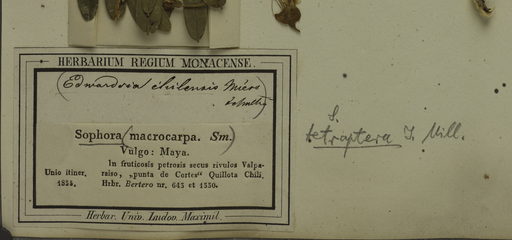 HERBARIUM REGIUM MONACENSE.
(Edwardsia chilensis Miers
Sophora (macrocarpa. Sm.)
Vulgo: Maya.
In fruticosis petrosis secus rivulos Valpa-
raiso, „punta de Cortes“ Quillota Chili.
Unio itiner. 1835. Hrbr. Bertero nr. 643 et 1330.
Herbar. Univ. Ludov. Maximil.
S.
tetraptera J. Mill.